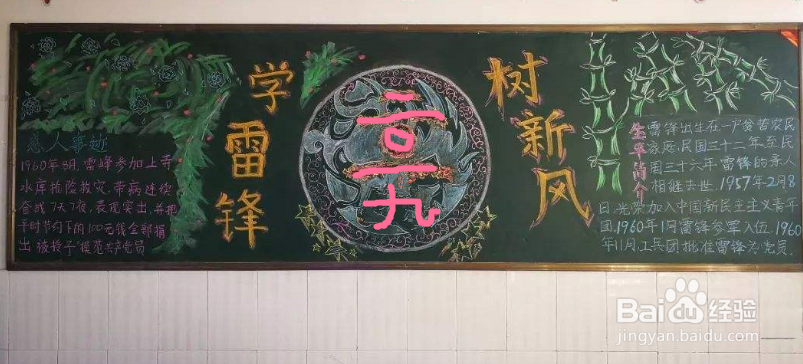 学雷锋
树新风
二〇一九
感人事迹
1960年8月,雷峰参加上寺
水库抢险救灾,带病连续
奋战7天7夜,表现突出,并把
平时节约下的100元钱全部捐
出被授予"模范共产党员
生平简介
雷锋出生在一户贫苦农民
家庭,民国三十二年至民
国三十六年雷锋的亲人
相继去世 1957年2月8
日,光荣加入中国新民主主义青年
团,1960年1月雷锋参军入伍,1960
年11月,工兵团批准雷锋为党员.
Baidu经验
jingyan.baidu.com